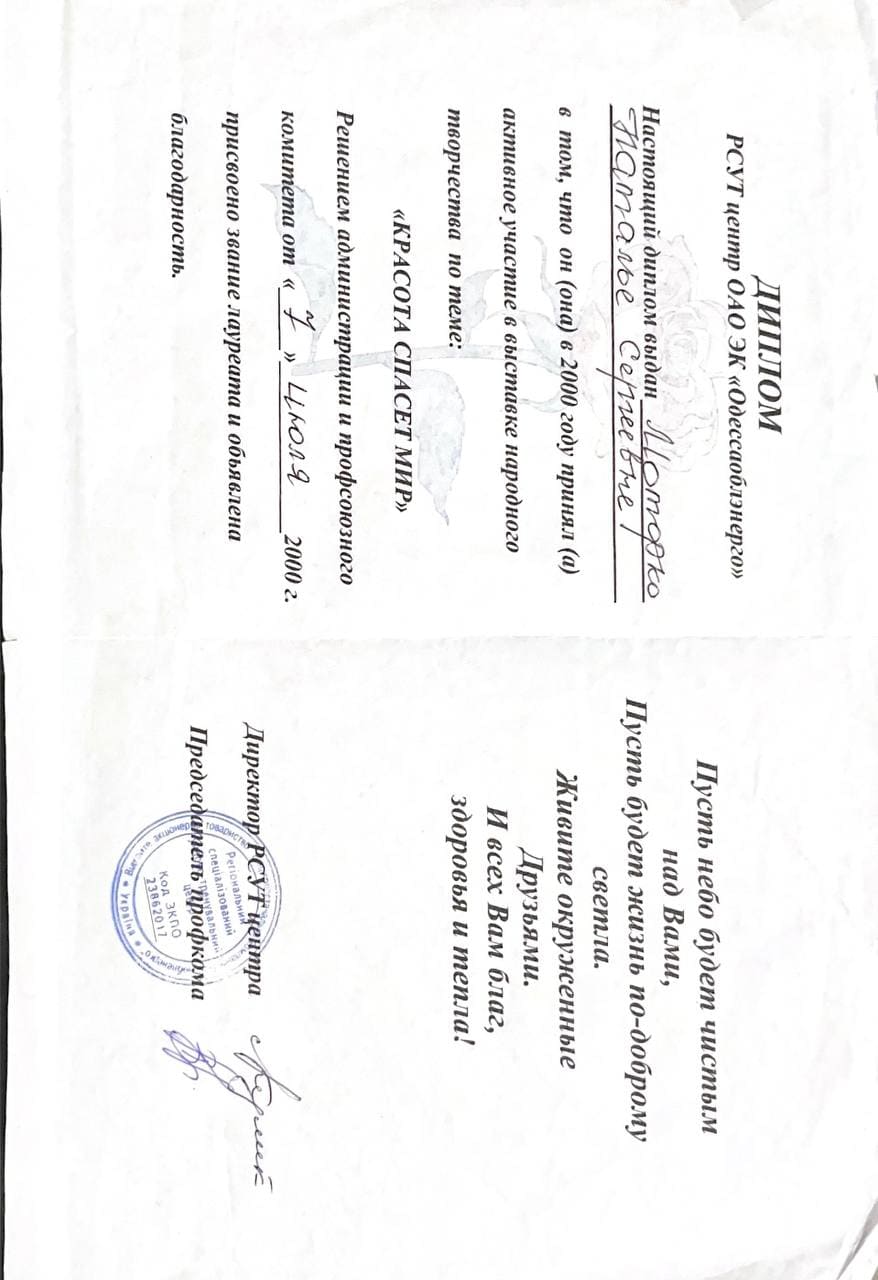 ДИПЛОМ
РСУТ центр ОАО ЭК «Одессаоблэнерго»
Настоящий диплом выдан Моторко
Наталье Сергеевне
в том, что он (она) в 2000 году принял (а)
активное участие в выставке народного
творчества по теме:
«КРАСОТА СПАСЕТ МИР»
Решением администрации и профсоюзного
комитета от « 7 » июля 2000 г.
присвоено звание лауреата и объявлена
благодарность.
Пусть небо будет чистым
над Вами,
Пусть будет жизнь по-доброму
светла.
Живите окруженные
Друзьями.
И всех Вам благ,
здоровья и тепла!
Директор РСУТ центра
Председатель профкома
Регіональний
спеціалізований
тренувальний
це
Код ЗКПО
23862017
Україна